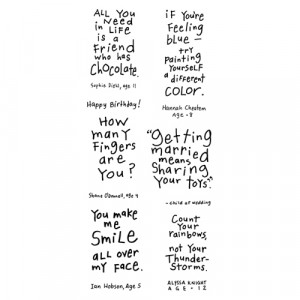 ALL YOU
NEED
iN LiFE
iS A
FRiEND
WHO HAS
CHOCOLATE.
Sophie Diehl, age 11
Happy Birthday!
HOW
MANY
FiNGERS
ARE
YOU?
Shane O'Donnell, age 4
You make
me
SMiLE
all over
my FACE.
Ian Hobson, Age 5
iF You're
FEELiNG
BLUE —
TRY
PAiNTiNG
YOURSELF
a different
COLOR.
Hannah Cheatem
AGE - 8
"Getting
married
means
SHaring
Your toys."
- child at wedding
COUNT
Your
rainbows,
not Your
THUNDER-
STORMS.
ALYSSA KNIGHT
AGE - 12